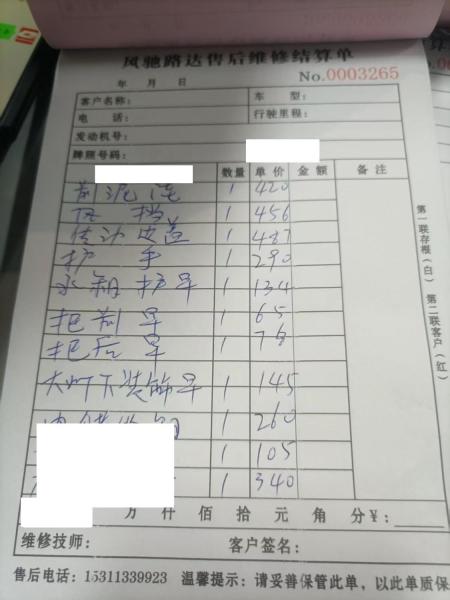 风驰路达售后维修结算单
No.0003265
年 月 日
客户名称： 车 型：
电 话： 行驶里程：
发动机号：
牌照号码：
数量 单价 金额 备注
前泥 1 420
挡 1 456
1 487
护 手 1 290
水箱护罩 1 134
把前罩 1 65
把后罩 1 78
大灯下装饰罩 1 145
1 260
1 105
1 340
万 仟 佰 拾 元 角 分 ¥：
维修技师： 客户签名：
售后电话：15311339923 温馨提示：请妥善保管此单，以此单质保
第一联存根（白） 第二联客户（红）